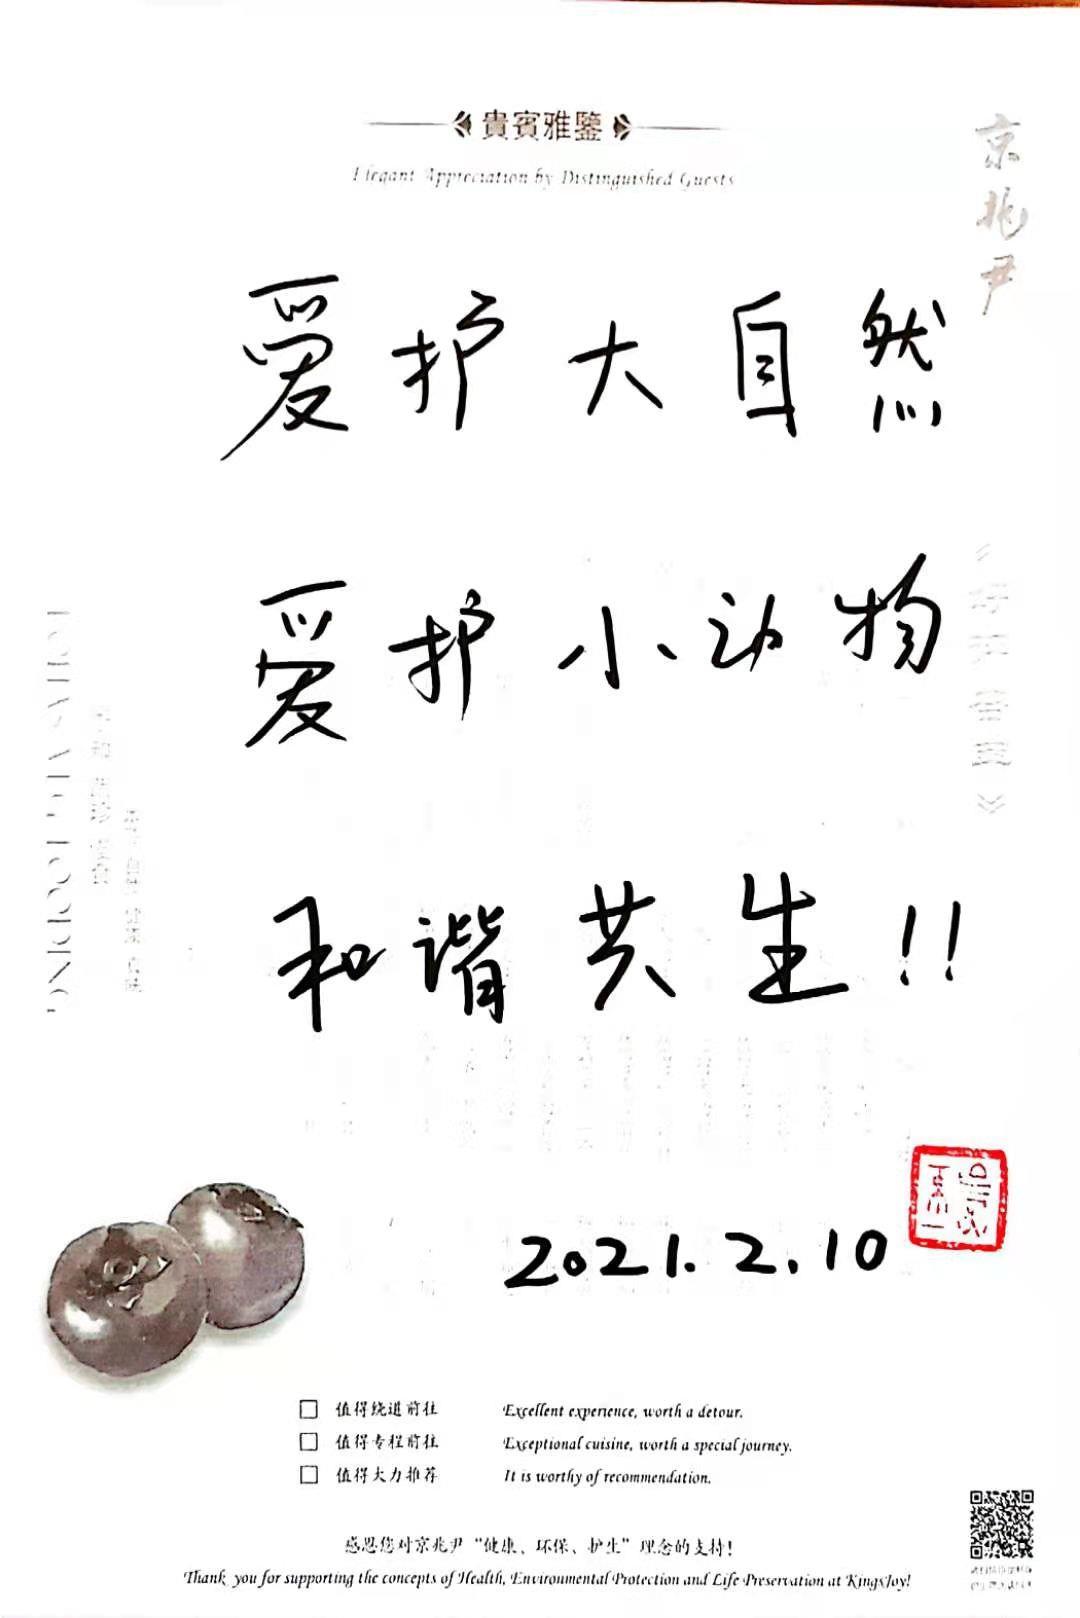 貴賓雅鑒
Elegant Appreciation by Distinguished Guests
京兆尹
爱护大自然
爱护小动物
和谐共生!!
2021.2.10
值得绕道前往 Excellent experience, worth a detour.
值得专程前往 Exceptional cuisine, worth a special journey.
值得大力推荐 It is worthy of recommendation.
感恩您对京兆尹“健康、环保、护生”理念的支持!
Thank you for supporting the concepts of Health, Environmental Protection and Life Preservation at KingsJoy!